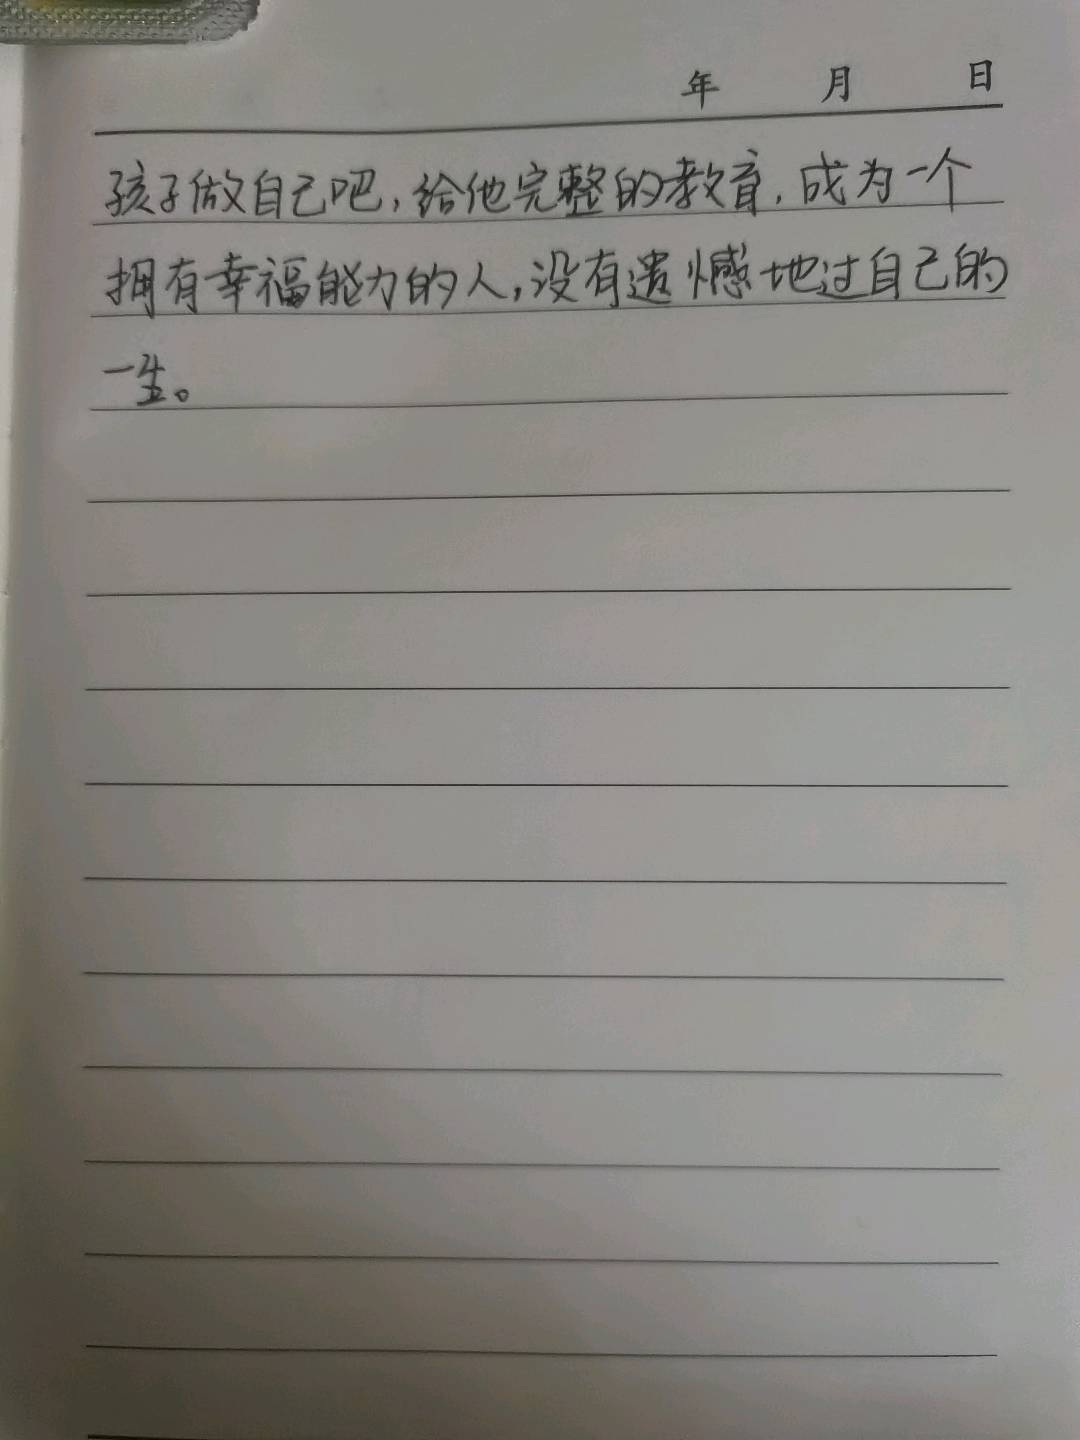 年 月 日
孩子做自己吧,给他完整的教育,成为一个
拥有幸福能力的人,没有遗憾地过自己的
一生。